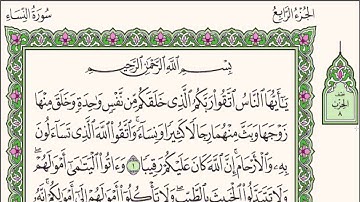 سُورَةُ النِّسَاءِ
الجُزءُ الرَّابِعُ
بِسْمِ اللَّهِ الرَّحْمَٰنِ الرَّحِيمِ
يَٰٓأَيُّهَا النَّاسُ اتَّقُوا۟ رَبَّكُمُ الَّذِى خَلَقَكُم مِّن نَّفْسٍ وَٰحِدَةٍ وَخَلَقَ مِنْهَا
زَوْجَهَا وَبَثَّ مِنْهُمَا رِجَالًا كَثِيرًا وَنِسَآءً ۚ وَاتَّقُوا۟ اللَّهَ الَّذِى تَسَآءَلُونَ
بِهِۦ وَالْأَرْحَامَ ۚ إِنَّ اللَّهَ كَانَ عَلَيْكُمْ رَقِيبًا ١ وَءَاتُوا۟ الْيَتَٰمَىٰٓ أَمْوَٰلَهُمْ ۖ
وَلَا تَتَبَدَّلُوا۟ الْخَبِيثَ بِالطَّيِّبِ ۖ وَلَا تَأْكُلُوٓا۟ أَمْوَٰلَهُمْ إِلَىٰٓ أَمْوَٰلِكُمْ ۚ إِنَّهُۥ
نصف
الحزب
٨